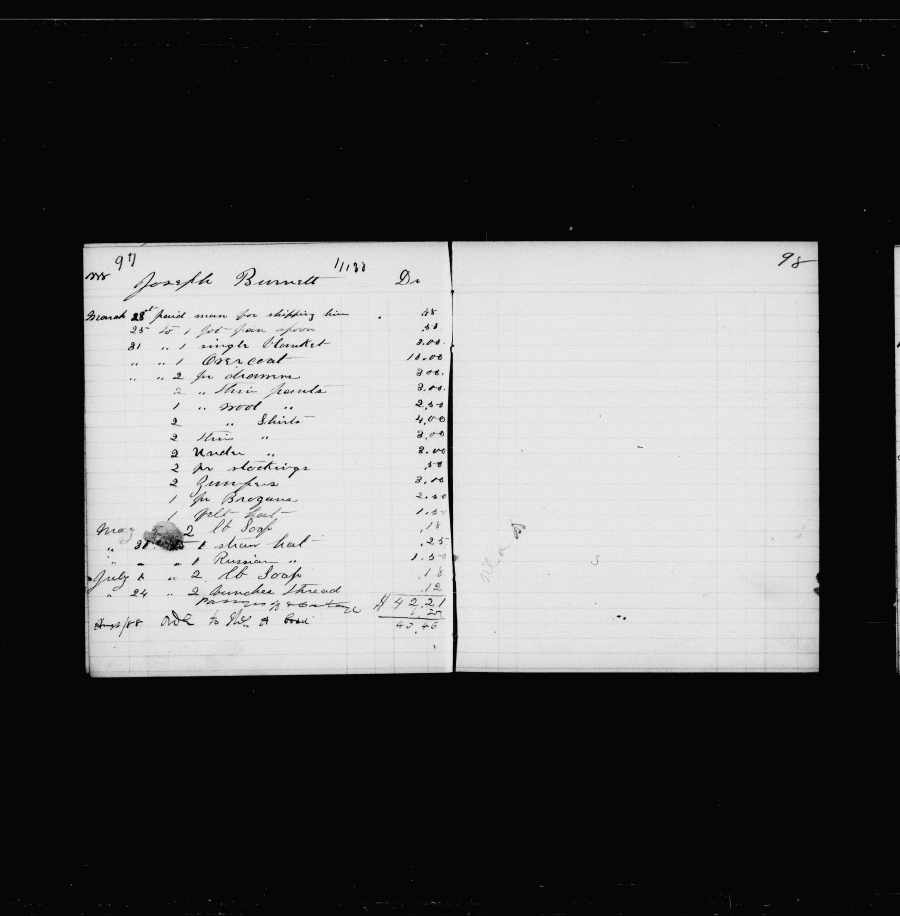 97
Mr Joseph Burnett 1/188 Dr
March 28st paid man for shipping him .48
25 to 1 pot pan spoon .50
31 " 1 single blanket 3.00
" " 1 Overcoat 10.00
" " 2 pr drawers 3.00
2 " thin pants 3.00
1 " wool " 2.50
2 " Shirts 4.00
2 thin " 3.00
2 Under " 3.00
2 pr stockings .50
2 Jumpers 3.00
1 pr Brogans 2.50
1 felt hat 1.50
May 2 lb Soap .18
" 30 1 straw hat .25
" " " 1 Russian " 1.50
July 1 " 2 lb Soap .18
" 24 " 2 bunches thread .12
Passage $42.21
Aug /88 to
98